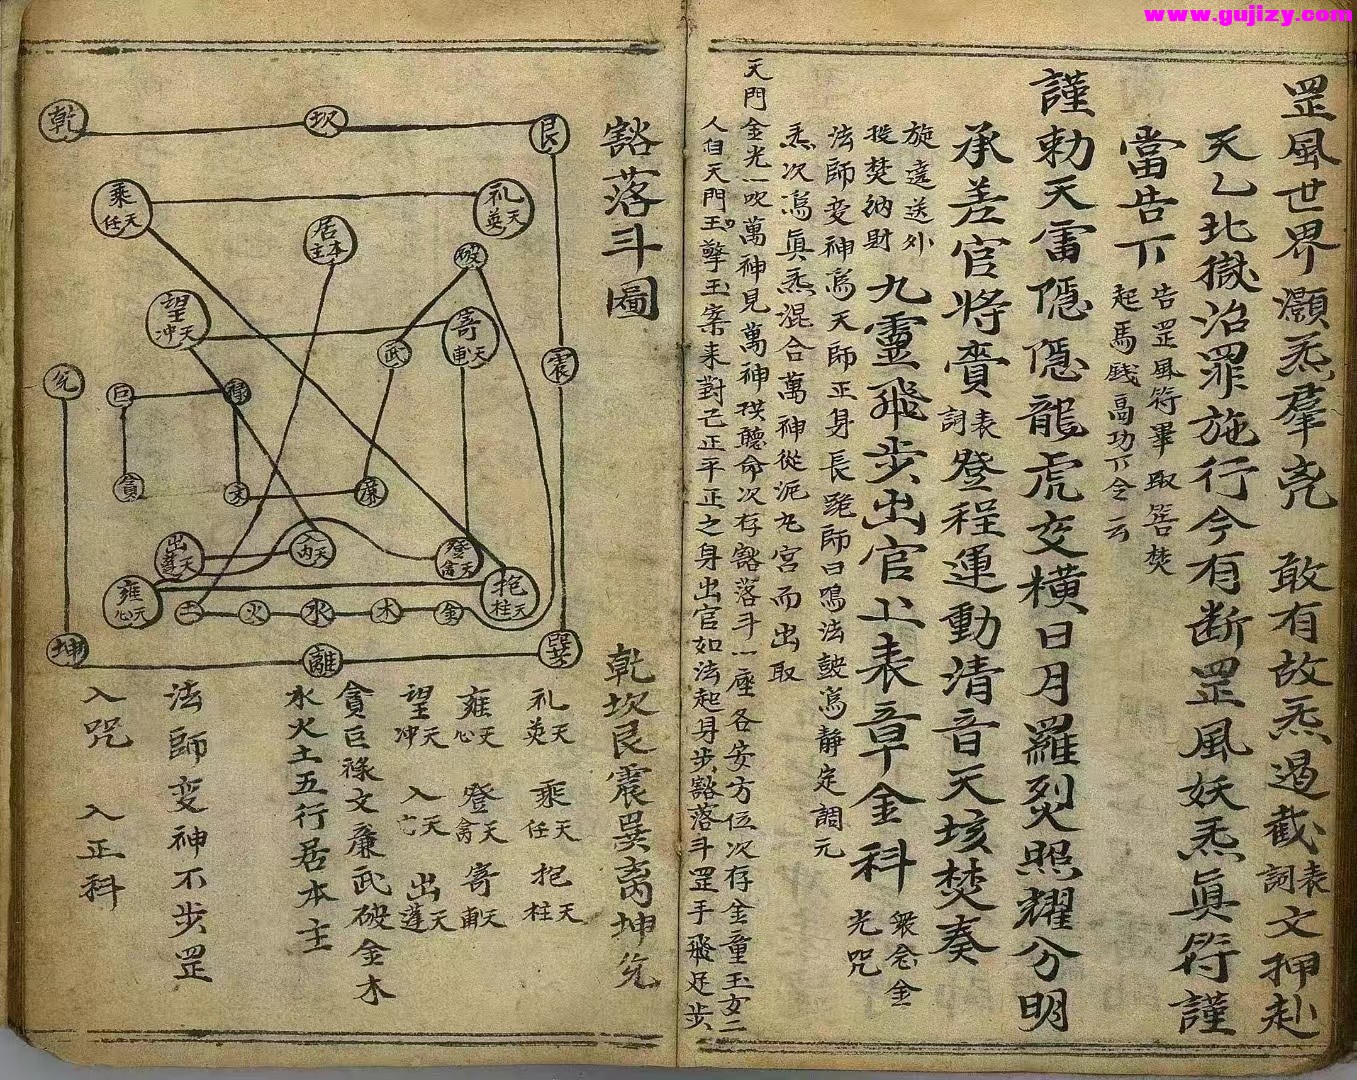 www.gujizy.com
罡風世界灝炁羣堯 敢有故炁遏截
表詞
文押赴
天乙北獄治罪施行今有斷罡風妖炁眞符謹
當告下
告罡風符畢取筶焚
起馬錢高功下令云
謹勅天雷隱隱龍虎交橫日月羅列照耀分明
承差官将賫
表詞
登程運動清音天垓焚奏
旋遶送外
投焚納財
九靈飛步出官上表章金科
衆念金
光咒
法師变神爲天師正身長跪師曰鳴法鼓爲静定調元
炁次爲眞炁混合萬神從泥丸宮而出取
天門金光一吹萬神見萬神拱聽命次存豁落斗一座各安方位次存金童玉女二
人自天門玉擎玉案来對己正平正之身出官如法起身步豁落斗罡手飛足步
豁落斗圖
乾坎艮震巽离坤兌
礼天英 乘天任 抱天柱
雍天心 登天禽 寄天
望天冲 入天 出天蓬
貪巨祿文廉武破金木
水火土五行居本主
法師变神不步罡
入咒 入正科
乾 坎 艮
乘天任 礼天英
居本主 破
望天冲 寄天 武
兌 巨 祿 震
貪 文 廉
出天蓬 入天内 登天禽
雍天心 土 火 水 木 金 抱天柱
坤 離 巽